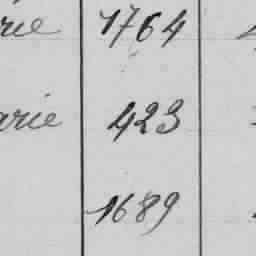 rie 1764
arie 423
1689